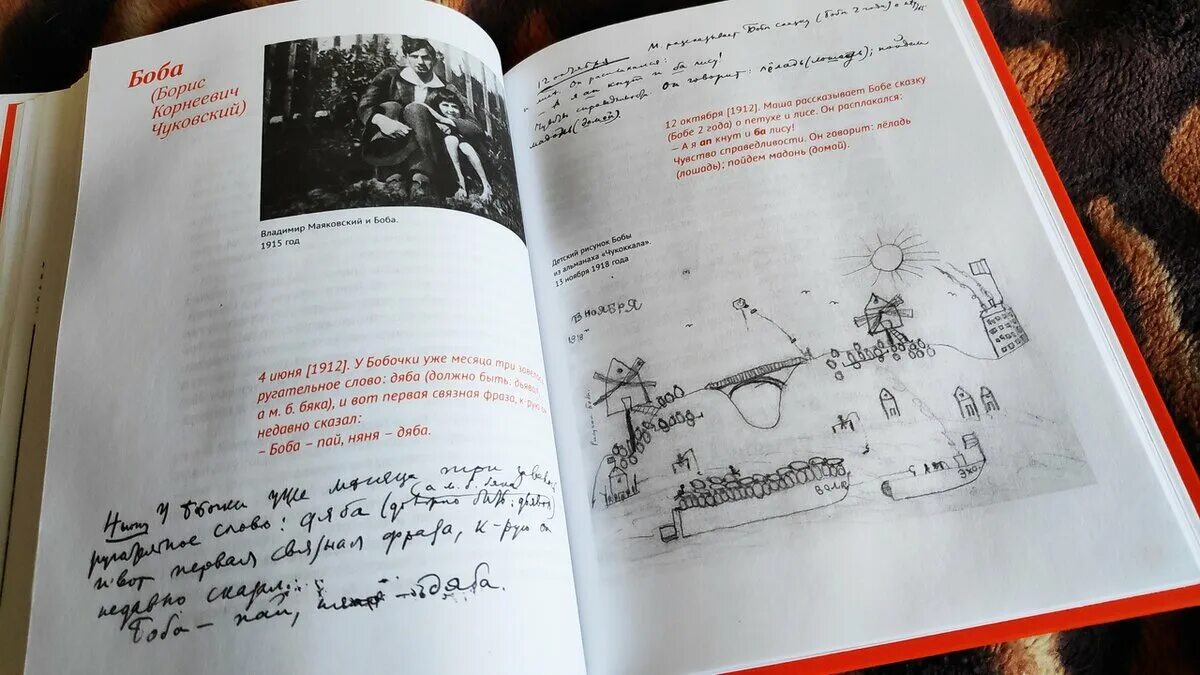 Боба
(Борис
Корнеевич
Чуковский)
Владимир Маяковский и Боба.
1915 год
4 июня [1912]. У Бобочки уже месяца три
ругательное слово: дяба (должно быть: дьявол,
а м. б. бяка), и вот первая связная фраза, к-рую он
недавно сказал:
– Боба – пай, няня – дяба.
4 июня У Бобочки уже месяца три
а м. б. бяка
ругательное слово: дяба (должно быть: дьявол)
и вот первая связная фраза, к-рую он
недавно сказал:
Боба – пай, няня – дяба.
12 октября М. рассказывает Бобе сказку (Бобе 2 года) о
Он расплакался:
– А я ап кнут и ба лису!
Чувство справедливости. Он говорит: лёладь (лошадь); пойдем
мадонь (домой).
12 октября [1912]. Маша рассказывает Бобе сказку
(Бобе 2 года) о петухе и лисе. Он расплакался:
– А я ап кнут и ба лису!
Чувство справедливости. Он говорит: лёладь
(лошадь); пойдем мадонь (домой).
Детский рисунок Бобы
из альманаха «Чукоккала».
13 ноября 1918 года
13 НОЯБРЯ
1918
ВОЛЯ
ЭХО